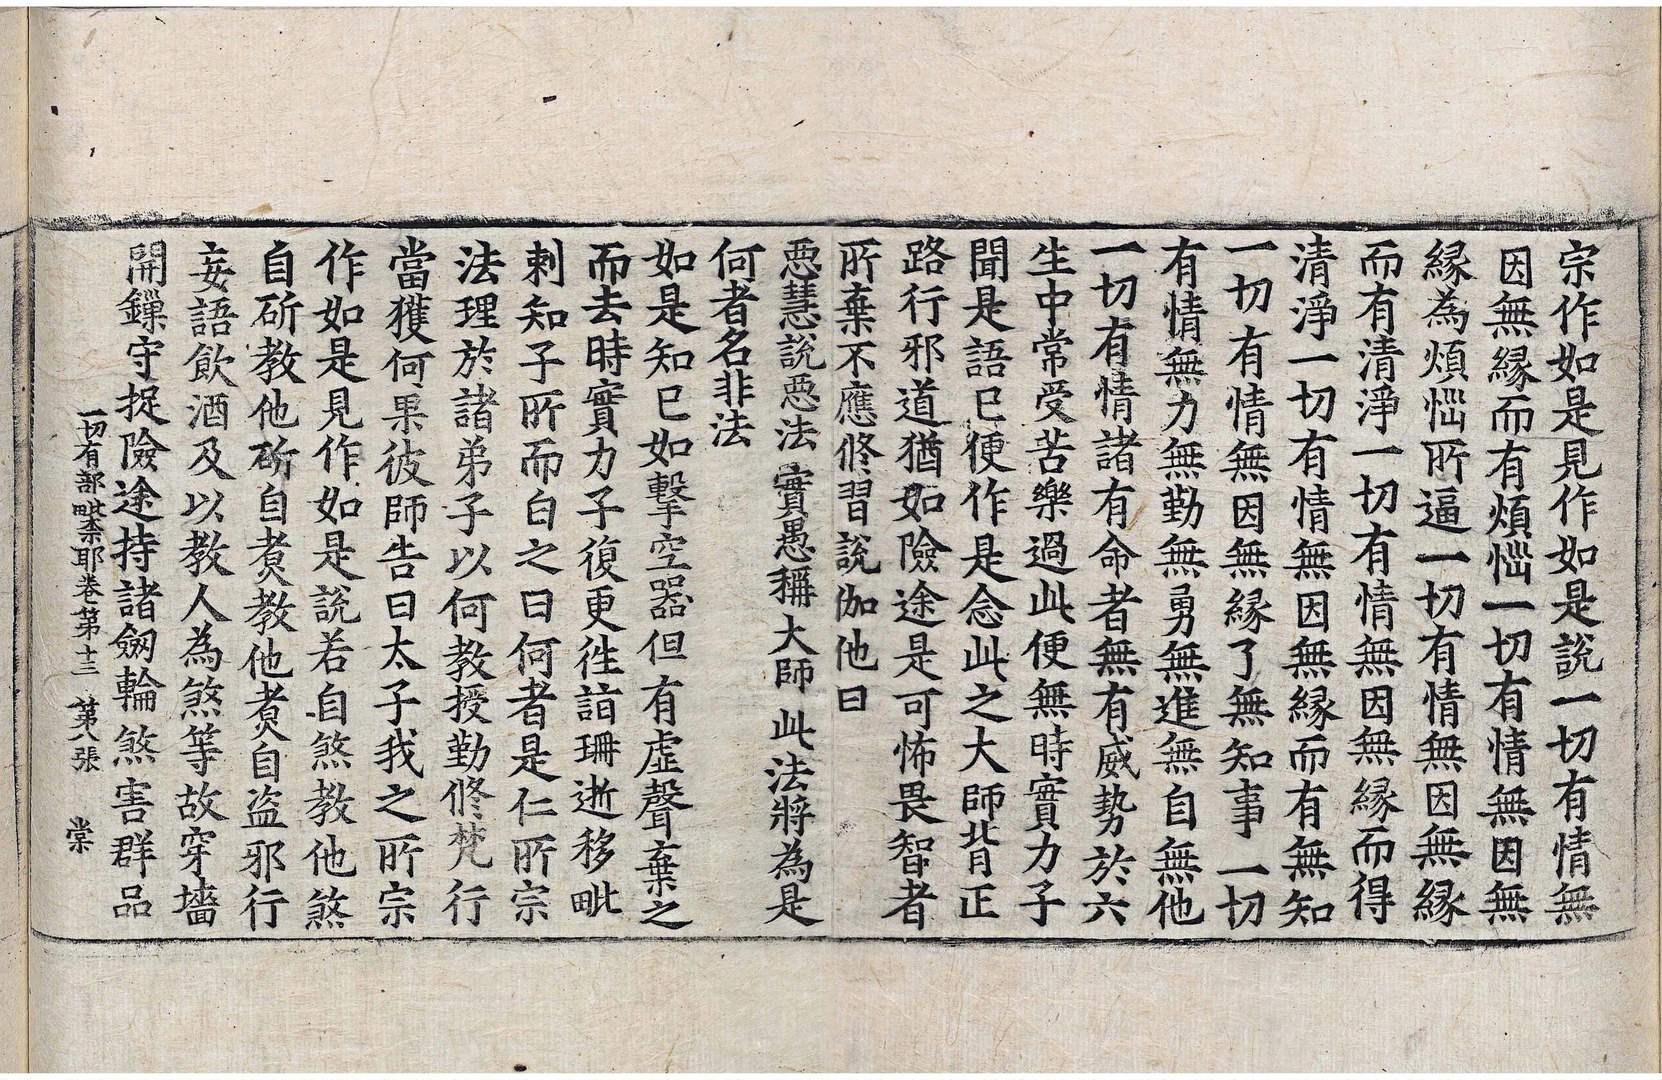 宗作如是見作如是說一切有情無
因無緣而有煩惱一切有情無因無
緣為煩惱所逼一切有情無因無緣
而有清淨一切有情無因無緣而得
清淨一切有情無因無緣而有無知
一切有情無因無緣了無知事一切
有情無力無勤無勇無進無自無他
一切有情諸有命者無有威勢於六
生中常受苦樂過此便無時實力子
聞是語已便作是念此之大師背正
路行邪道猶如險途是可怖畏智者
所棄不應修習說伽他曰
惡慧說惡法 實愚稱大師 此法將為是
何者名非法
如是知已如擊空器但有虛聲棄之
而去時實力子復更往詣珊逝移毗
剌知子所而白之曰何者是仁所宗
法理於諸弟子以何教授勤修梵行
當獲何果彼師告曰太子我之所宗
作如是見作如是說若自煞教他煞
自斫教他斫自煑教他煑自盜邪行
妄語飲酒及以教人為煞等故穿墻
開鏁守捉險途持諸劒輪煞害群品
一切有部毗柰耶卷第十三 第八張 棠